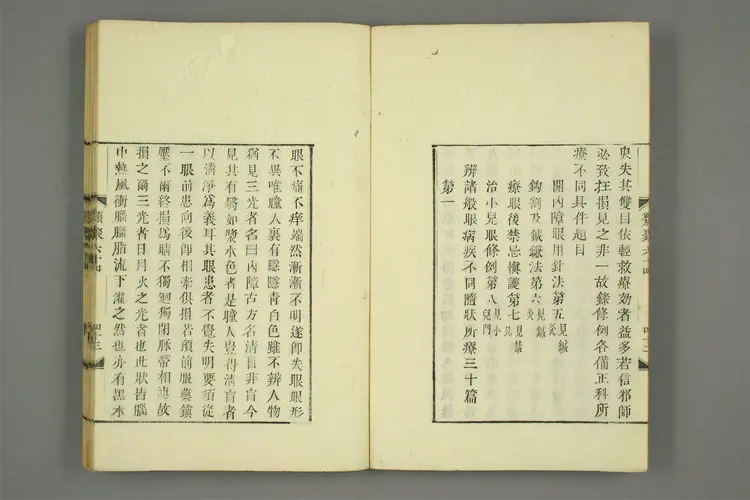 臾失其雙目依輕救療効者益多若信邪師
必致抂損見之非一故錄條例各備正科所
療不同具件題目
開内障眼用針法第五見鍼灸
鈎割及鍼鎌法第六見鍼灸
療眼後禁忌慎護第七見禁忌
治小兒眼條例第八見小兒門
辨諸般眼病疾不同隨狀所療三十篇
第一
眼不痛不痒端然漸漸不明遂卽失眼眼形
不異唯瞳人裏有隱隱青白色雖不辨人物
猶見三光者名曰内障古方名清盲非盲今
見其有翳如漿水色者是瞳人豈得清盲者
以清淨爲義耳其眼患者不覺失明要須從
一眼前患向後卽相牽俱損若前前服藥鎮
壓不爾終損爲睛不獨廻獨閉脉帶相連故
損之爾三光者日月火之光者也此狀皆腦
中熱風衝腦腦脂流下灌之然也亦有黑水
類聚六十四